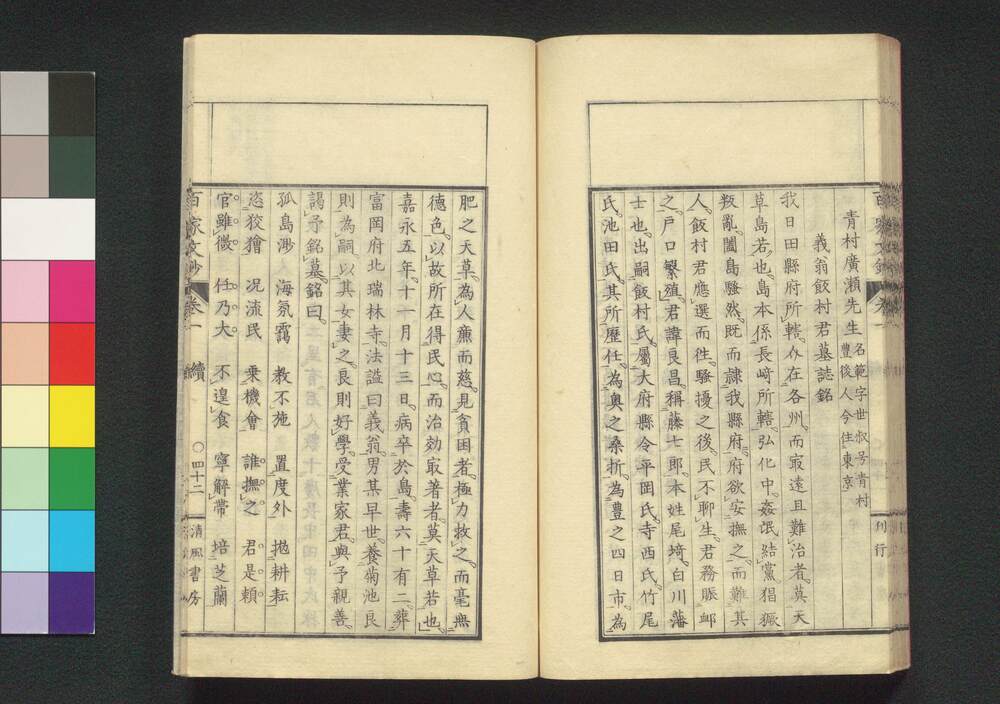 青村廣瀬先生 名範字世叔号青村 豐後人今住東京
義翁飯村君墓誌銘
我日田縣府所轄。分在各州。而寂遠且難治者。莫天
草島若也。島本係長崎所轄。弘化中。姦氓結黨猖獗
叛亂。闔島騷然。既而隷我縣府。府欲安撫之。而難其
人。飯村君應選而徃。騷擾之後。民不聊生。君務賑邺
之。戸口繁殖。君諱良昌。稱藤七郎。本姓尾﨑。白川藩
士也。出嗣飯村氏。屬大府縣令平岡氏。寺西氏。竹尾
氏。池田氏。其所歷任。為奥之桑折。為豊之四日市。為
肥之天草。為人廉而慈。見貧困者。極力救之。而毫無
德色。以故所在得民心。而治効㝡著者。莫天草若也。
嘉永五年。十一月十三日。病卒於島。壽六十有二。葬
富岡府北瑞林寺。法謚曰義翁。男某早世。養菊池良
則為嗣。以其女妻之。良則好學。受業家君。與予親善。
謁予銘墓。銘曰。
孤島渺 海氛靄 教不施 置度外 拋耕耘
恣狡獪 况流民 乗機會 誰撫之 君是頼
官雖微 任乃大 不遑食 寧解帶 培芝蘭
百家文鈔 卷一 續 ○四十二 清風書房
刊行